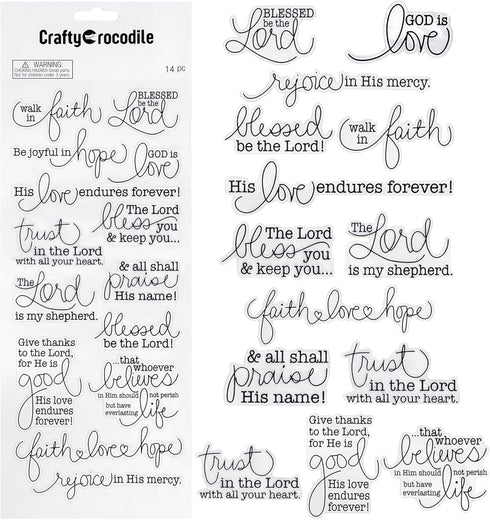 Crafty Crocodile
WARNING:
CHOKING HAZARD-Small parts.
Not for children under 3 years.
14 pc
walk
in faith
BLESSED
be the
Lord
Be joyful in hope
GOD is
love
His love endures forever!
trust
in the Lord
with all your heart.
The Lord
bless you
& keep you...
The
Lord
is my shepherd.
& all shall
praise
His name!
blessed
be the Lord!
Give thanks
to the Lord,
for He is
good
His love
endures
forever!
...that
whoever
believes
in Him should not perish
but have
everlasting life
faith love hope
rejoice in His mercy.
BLESSED
be the
Lord
GOD is
love
rejoice in His mercy.
blessed
be the Lord!
walk
in faith
His love endures forever!
The Lord
bless you
& keep you...
The
Lord
is my shepherd.
faith love hope
& all shall
praise
His name!
trust
in the Lord
with all your heart.
trust
in the Lord
with all your heart.
Give thanks
to the Lord,
for He is
good
His love
endures
forever!
...that
whoever
believes
in Him should not perish
but have
everlasting life